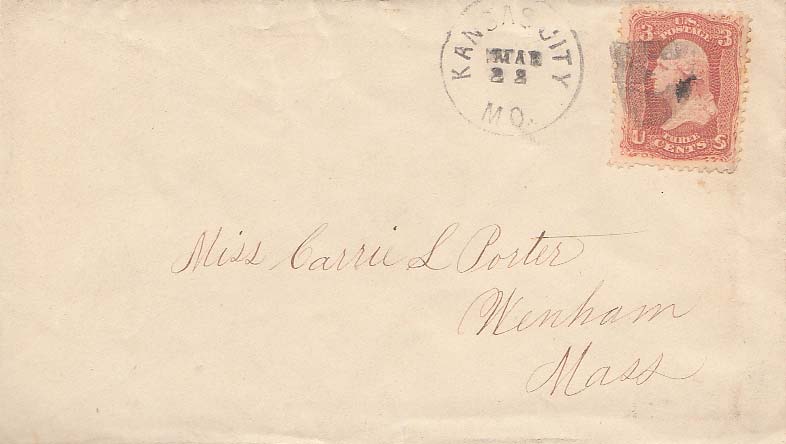 KANSAS CITY
MAR
22
MO.
3 U.S. 3
POSTAGE
U THREE S
CENTS
Miss Carrie L Porter
Wenham
Mass